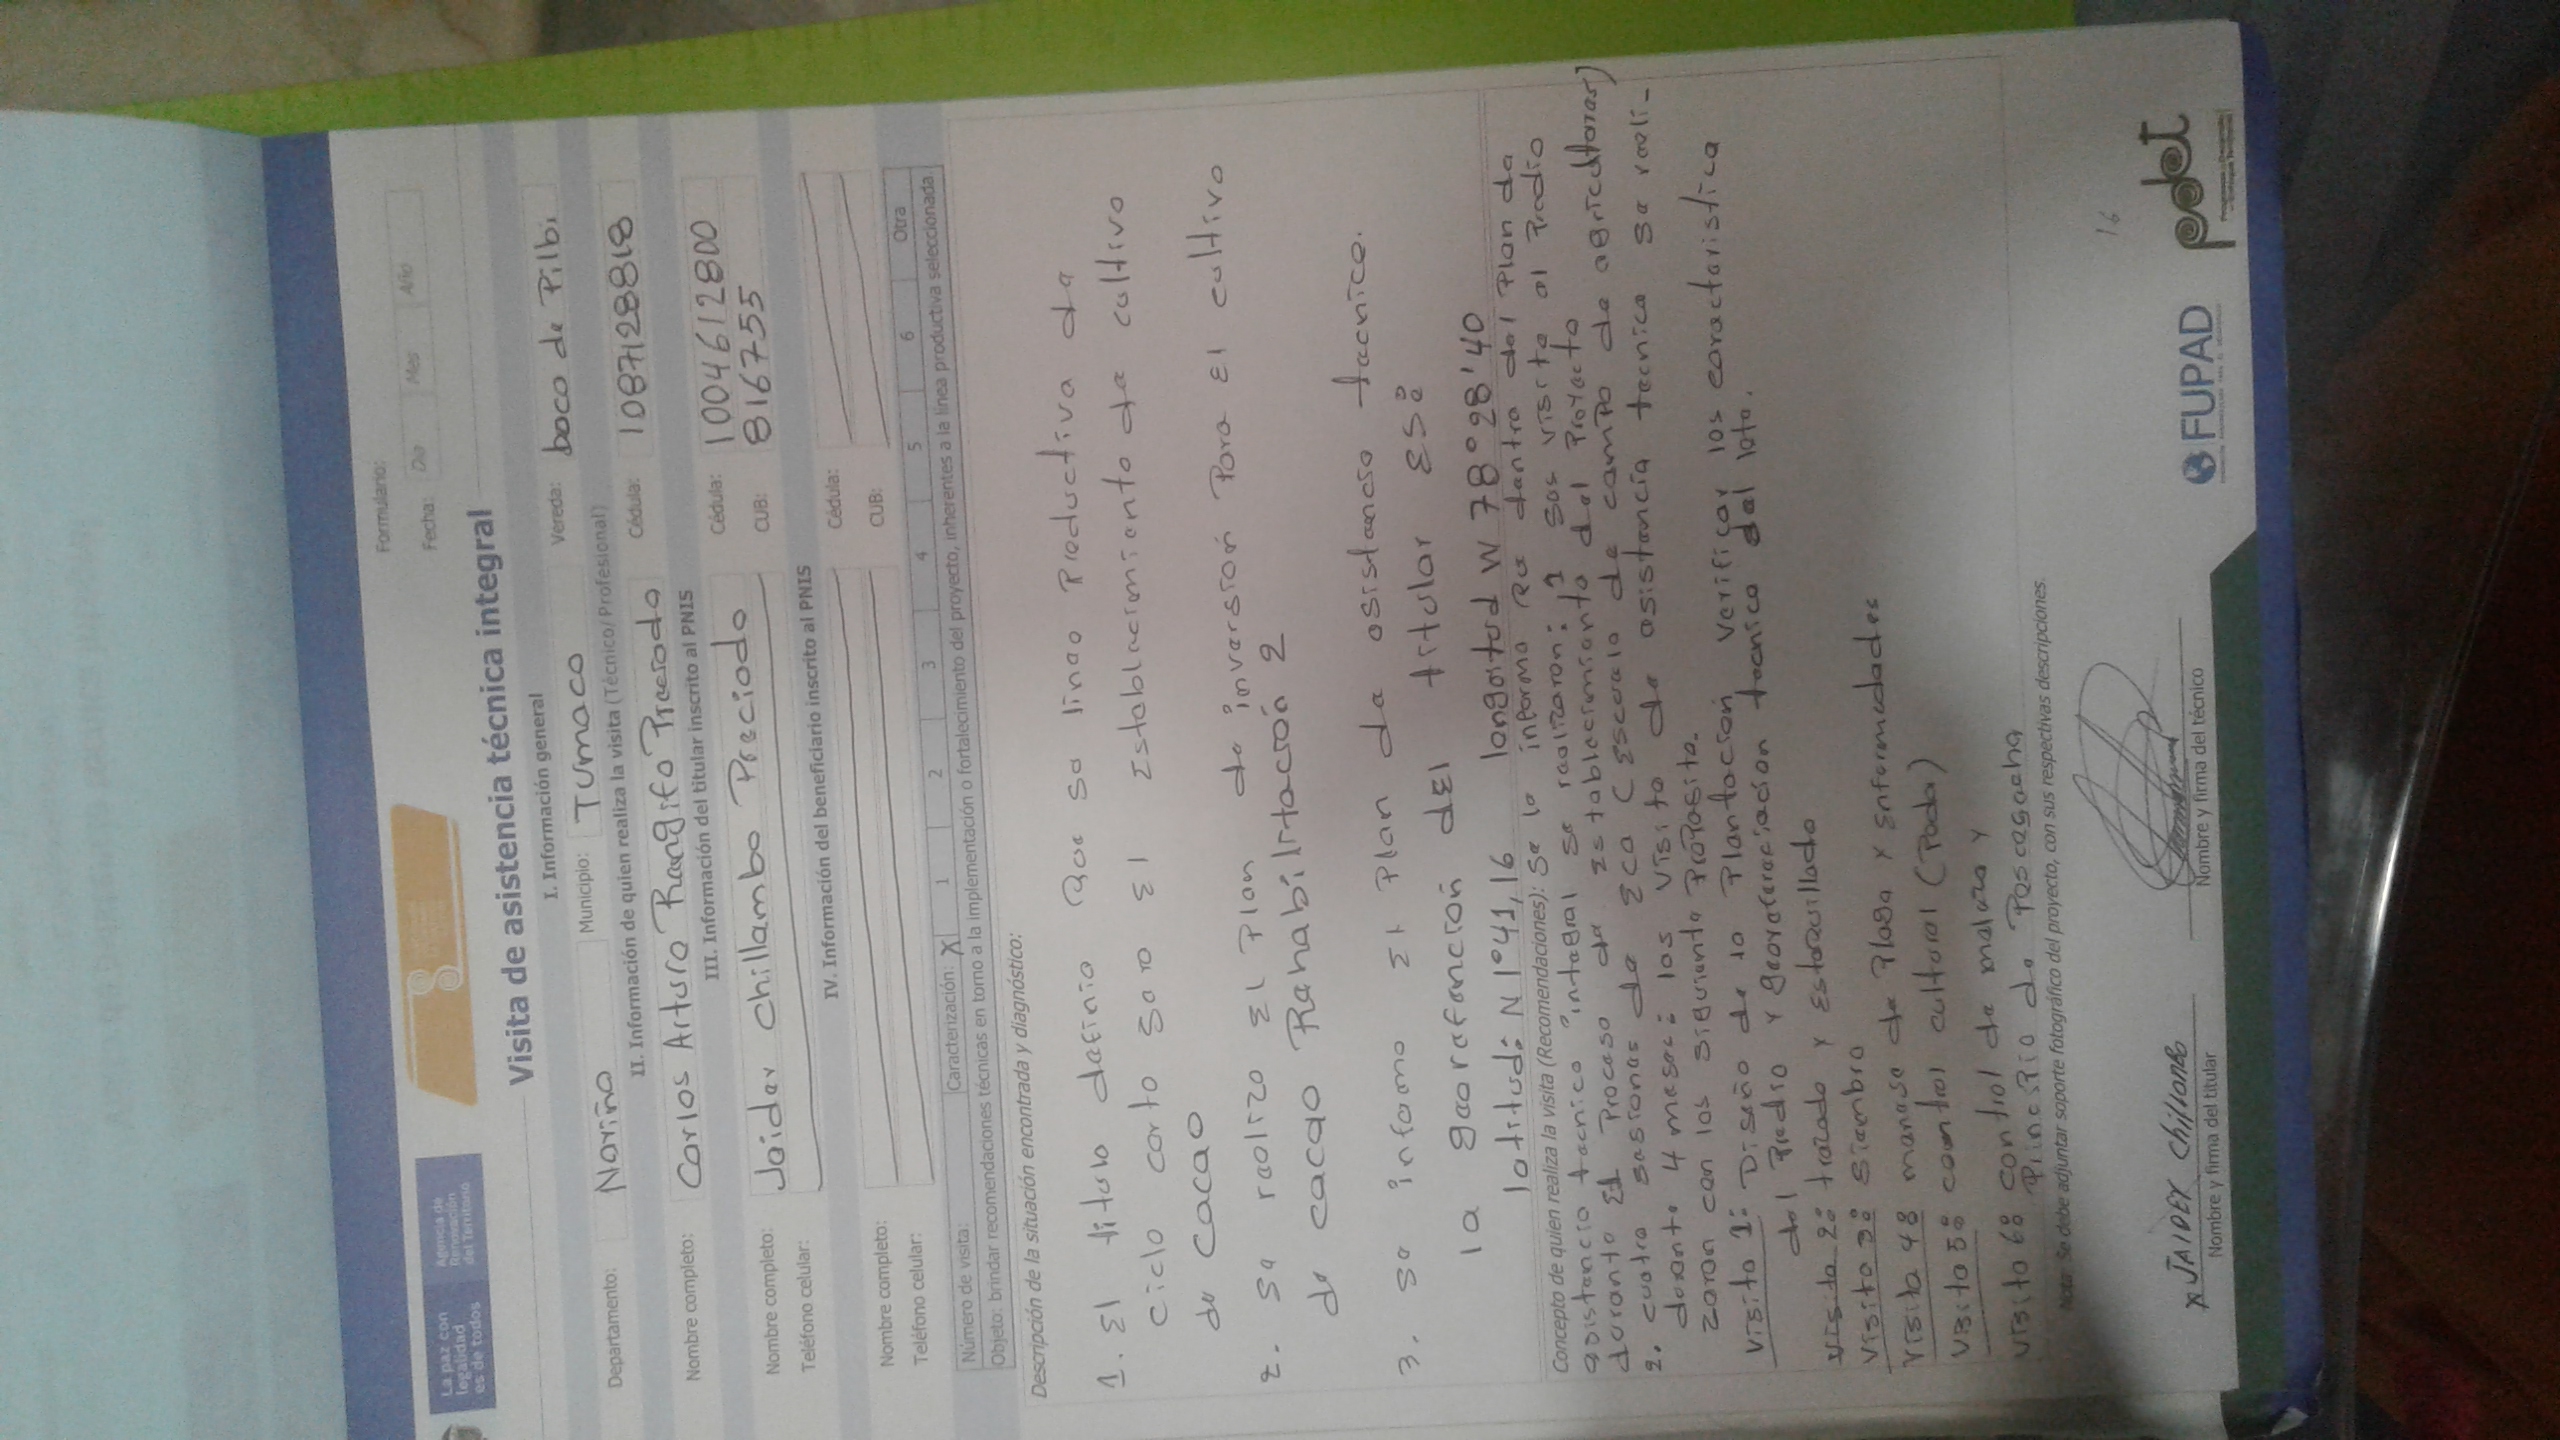 La paz con
legalidad
es de todos
Agencia de
Renovación
del Territorio
Formulario:
Fecha: Día Mes Año
Visita de asistencia técnica integral
I. Información general
Departamento: Nariño Municipio: Tumaco Vereda: boca de Pilbi
II. Información de quien realiza la visita (Técnico/Profesional)
Nombre completo: Carlos Arturo Rengifo Preciado Cédula: 1087128818
III. Información del titular inscrito al PNIS
Nombre completo: Jaider Chillambo Preciado Cédula: 1004612800
Teléfono celular: CUB: 816755
IV. Información del beneficiario inscrito al PNIS
Nombre completo: Cédula:
Teléfono celular: CUB:
Número de visita: Caracterización: X 1 2 3 4 5 6 Otra
Objeto: brindar recomendaciones técnicas en torno a la implementación o fortalecimiento del proyecto, inherentes a la línea productiva seleccionada.
Descripción de la situación encontrada y diagnóstico:
1. El titula definio Que su linea Productiva de
ciclo corto sera El Establecimiento de cultivo
de cacao
2. Se realizo El Plan de inversión Para El cultivo
de cacao Rehabilitación 2
3. Se informo El Plan de asistencia tecnica.
la georefención DEL titular ES:
latitud: N 1°41,16 longotud W 78°28'40
Concepto de quien realiza la visita (Recomendaciones): Se lo informo Ra dentro del Plan de
asistencia tecnico integral se realizaron: 1 sas visita al Predio
durante El Proceso de establecimiento del Proyecto
2. cuatro sesiones de ECA (Escuela de campo de agricultores)
durante 4 meses: las visita de asistencia tecnica se reali-
zaran con los siguiente Proposito.
Visita 1: Diseño de la Plantación verificar las caracteristica
del Predio y georeferación tecnica del lote.
Visita 2: trazado y Estaquillado
Visita 3: siembra
Visita 4: manejo de Plaga y Enfermedades
Visita 5: control cultural (Poda)
Visita 6: control de maleza y
Principio de Poscosecha
Nota: Se debe adjuntar soporte fotográfico del proyecto, con sus respectivas descripciones.
x JAIDER Chillambo
Nombre y firma del titular
Nombre y firma del técnico
FUPAD
pdet
16